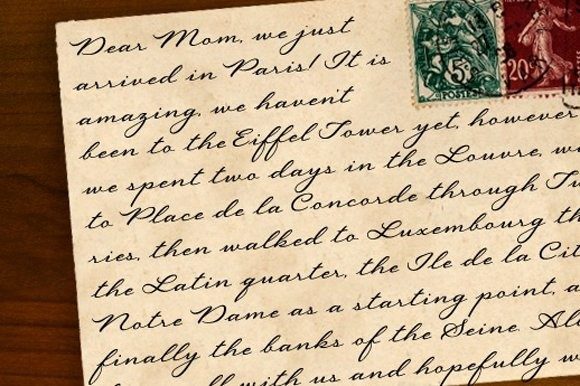 Dear Mom, we just
arrived in Paris! It is
amazing, we havent
been to the Eiffel Tower yet, however
we spent two days in the Louvre,
to Place de la Concorde through
ries, then walked to Luxembourg
the Latin quarter, the Ile de la
Notre Dame as a starting point,
finally the banks of the Seine.
with us and hopefully
5c
POSTES
20